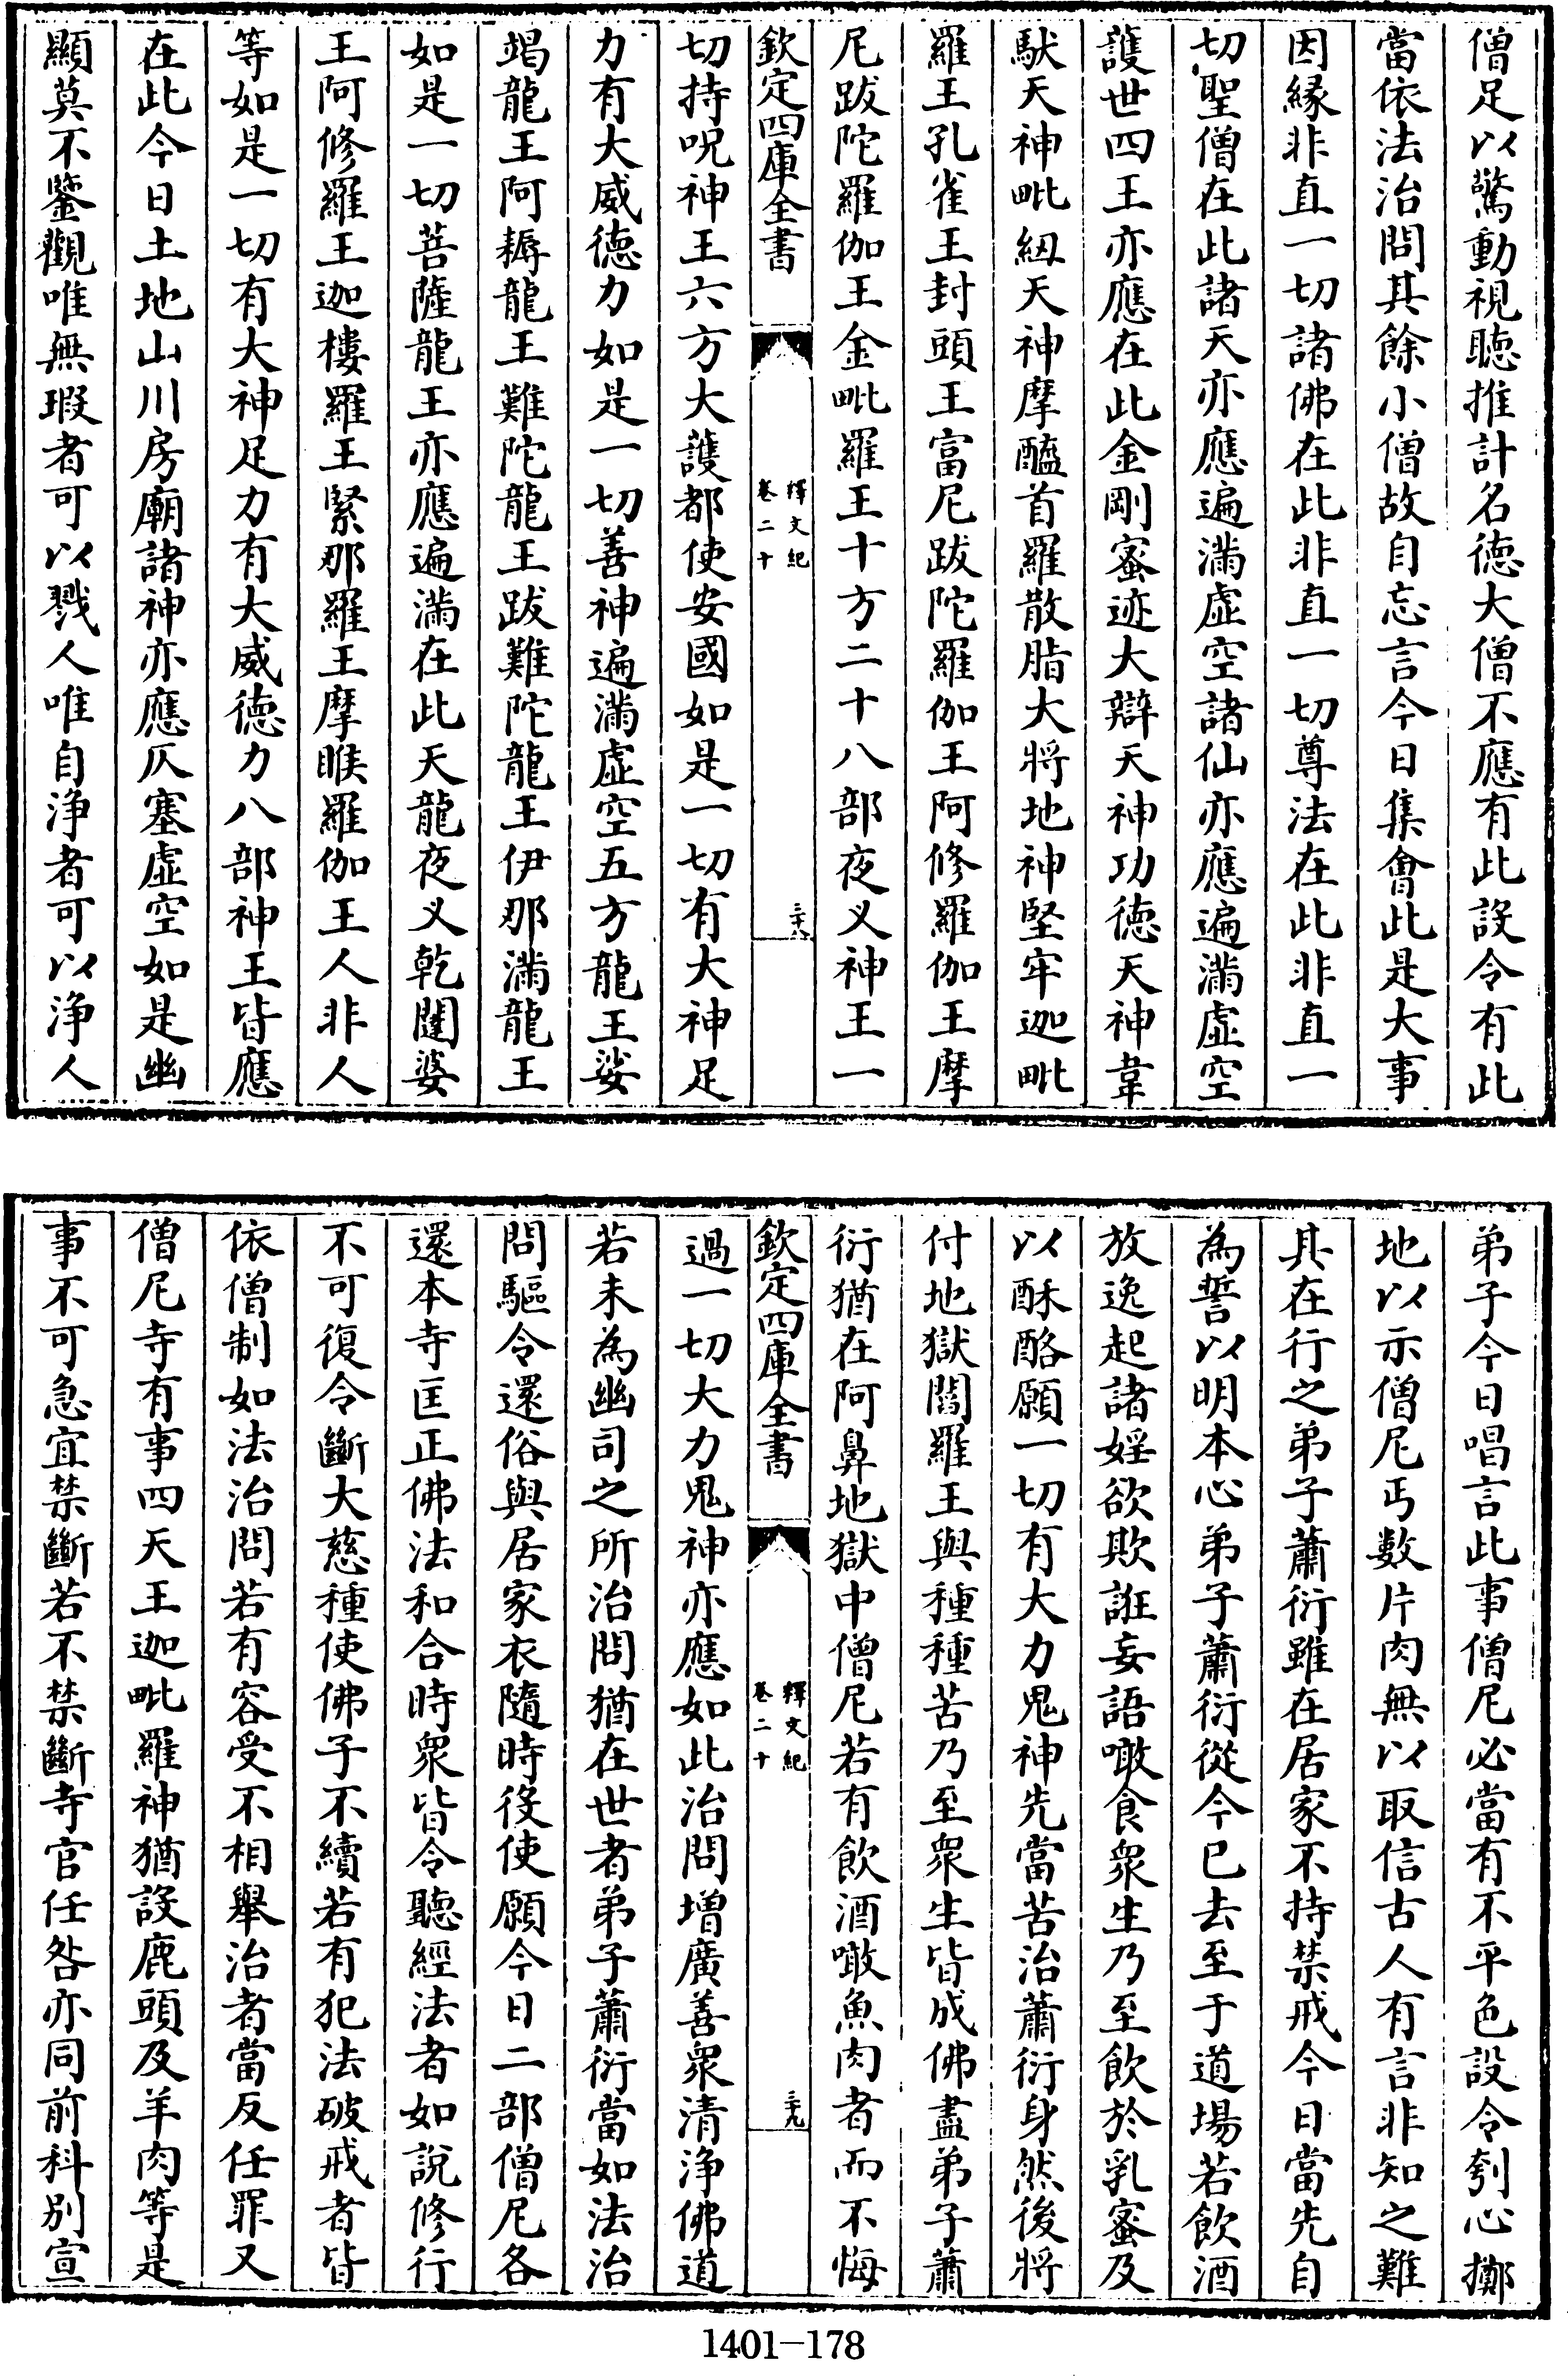 僧足以驚動視聴推計名徳大僧不應有此設令有此
當依法治問其餘小僧故自忘言今日集會此是大事
因緣非直一切諸佛在此非直一切尊法在此非直一
切聖僧在此諸天亦應遍滿虛空諸仙亦應遍滿虛空
護世四王亦應在此金剛蜜迹大辯天神功徳天神韋
馱天神毗紐天神摩醯首羅散脂大將地神堅牢迦毗
羅王孔雀王封頭王富尼跋陀羅伽王阿修羅伽王摩
尼跋陀羅伽王金毗羅王十方二十八部夜义神王一
欽定四庫全書
釋文紀
卷二十
三十八
切持呪神王六方大護都使安國如是一切有大神足
力有大威徳力如是一切善神遍滿虛空五方龍王娑
竭龍王阿耨龍王難陀龍王跋難陀龍王伊那滿龍王
如是一切菩薩龍王亦應遍滿在此天龍夜义乾闥婆
王阿修羅王迦樓羅王緊那羅王摩睺羅伽王人非人
等如是一切有大神足力有大威徳力八部神王皆應
在此今日土地山川房廟諸神亦應仄塞虛空如是幽
顯莫不鑒觀唯無瑕者可以戮人唯自淨者可以淨人
弟子今日唱言此事僧尼必當有不平色設令刳心擲
地以示僧尼丐數片肉無以取信古人有言非知之難
其在行之弟子蕭衍雖在居家不持禁戒今日當先自
為誓以明本心弟子蕭衍從今已去至于道場若飲酒
放逸起諸婬欲欺誑妄語噉食眾生乃至飲於乳蜜及
以酥酪願一切有大力鬼神先當苦治蕭衍身然後將
付地獄閻羅王與種種苦乃至眾生皆成佛盡弟子蕭
衍猶在阿鼻地獄中僧尼若有飲酒噉魚肉者而不悔
欽定四庫全書
釋文紀
卷二十
三十九
過一切大力鬼神亦應如此治問增廣善眾清淨佛道
若未為幽司之所治問猶在世者弟子蕭衍當如法治
問驅令還俗與居家衣隨時役使願今日二部僧尼各
還本寺匡正佛法和合時眾皆令聽經法者如說修行
不可復令斷大慈種使佛子不續若有犯法破戒者皆
依僧制如法治問若有容受不相舉治者當反任罪又
僧尼寺有事四天王迦毗羅神猶設鹿頭及羊肉等是
事不可急宜禁斷若不禁斷寺官任咎亦同前科別宣
1401-178